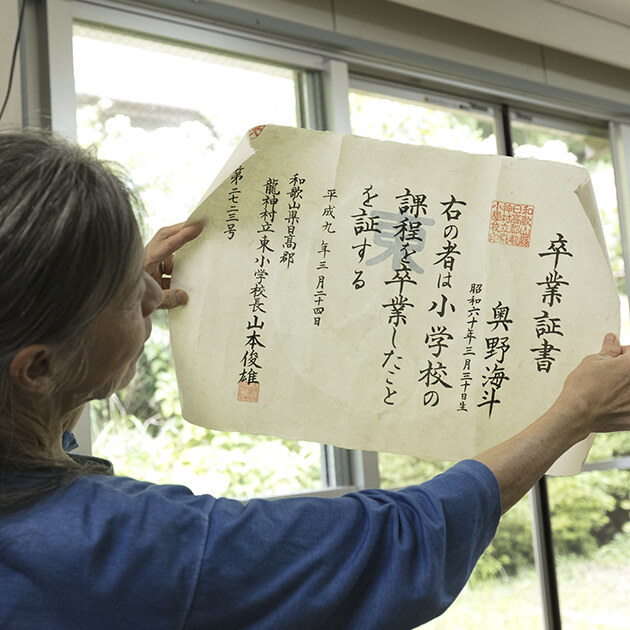 卒業証書
奥野海斗
昭和六十年三月三十日生
右の者は小学校の
課程を卒業したこと
を証する
東
平成九年三月二十四日
和歌山県日高郡
龍神村立東小学校長山本俊雄
第二七二三号